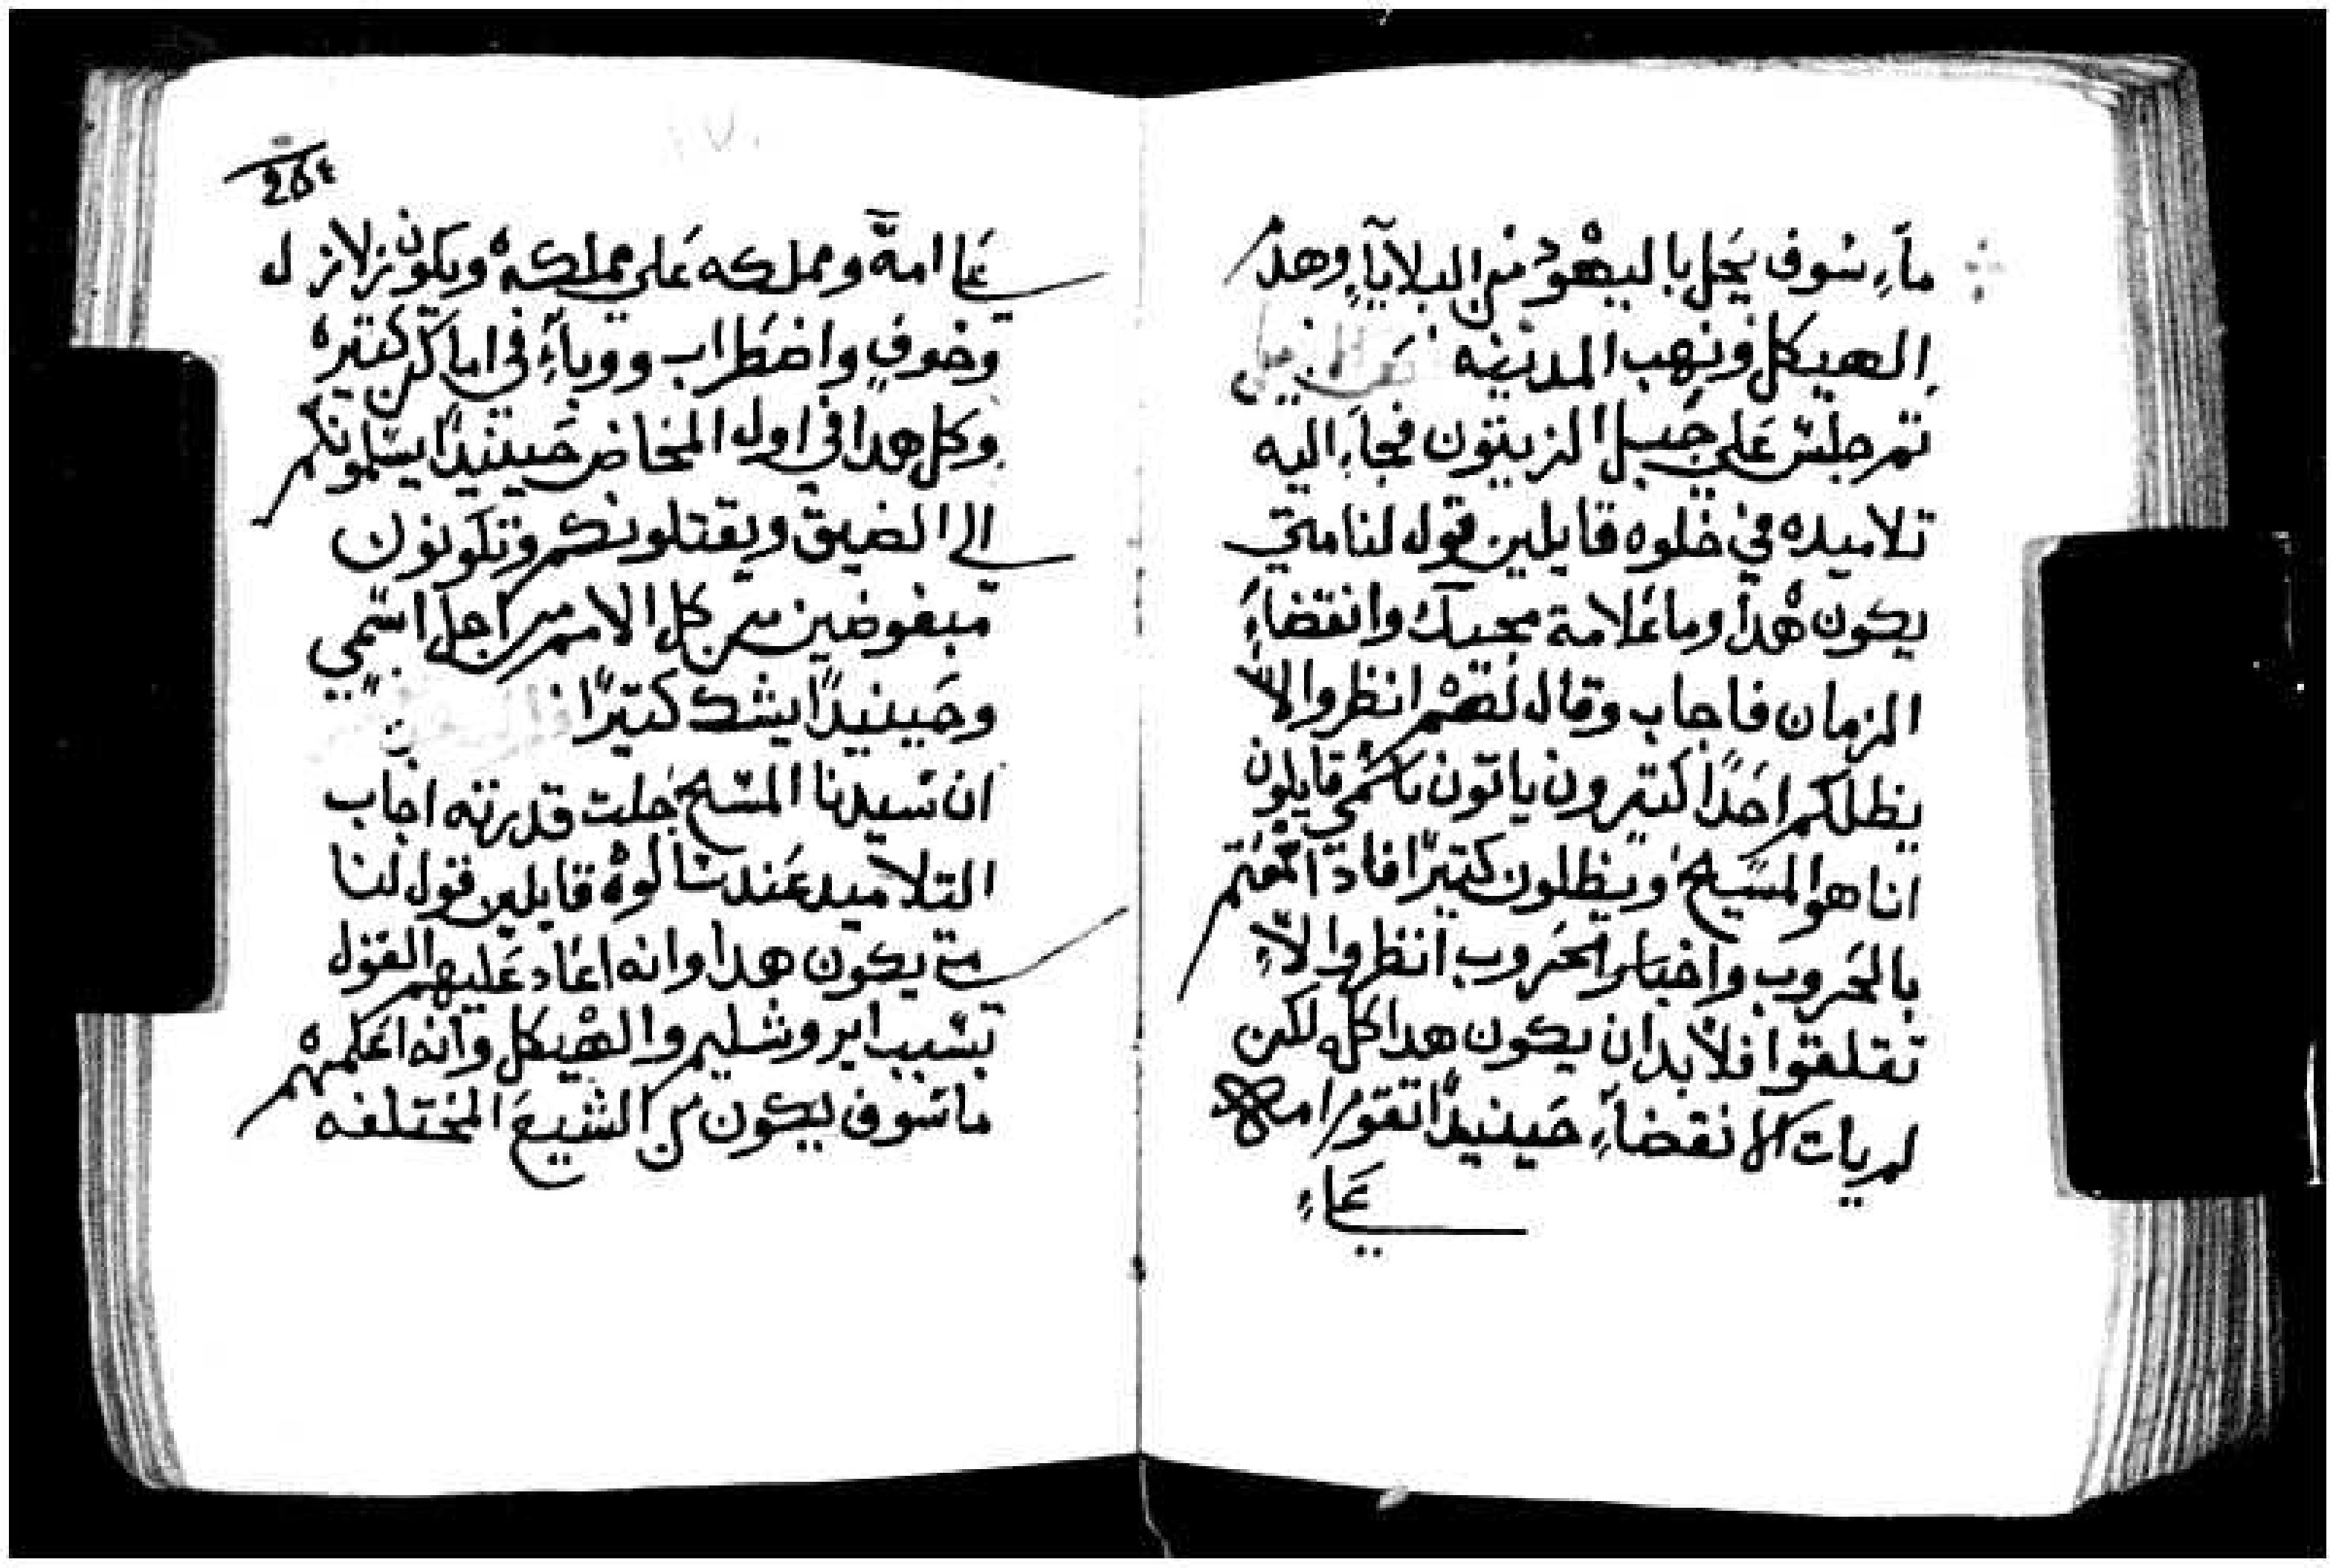 ماء سوف يحل باليهود من البلايا وهد
الهيكل ونهب المدينه
تم جلس على جبل الزيتون فجاء اليه
تلاميده في خلوه قايلين قول لنا متى
يكون هدا وما علامة مجيك وانقضاء
الزمان فاجاب وقال لهم انظروا لا
يظلكم احدا كتيرون ياتون باسمي قايلون
انا هو المسيح ويظلون كتيرا فادا سمعتم
بالحروب واخبار الحروب انظروا لا
تقلقوا فلا بد ان يكون هدا كله لكن
لم يات الانقضاء حينيدا تقوم امه
على
على امة ومملكه على مملكه ويكون زلازل
وخوف واضطراب ووباء في اماكن كتيره
وكل هدا في اول المخاض حينيدا يسلمونكم
الى الضيق ويقتلونكم وتكونون
مبغوضين من كل الامم من اجل اسمي
وحينيدا يشك كتيرا
ان سيدنا المسيح جلت قدرته اجاب
التلاميد عند سالوه قايلين قول لنا
متى يكون هدا وانه اعاد عليهم القول
بسبب ايروشليم والهيكل وانه اعلمهم
ما سوف يكون من الشيع المختلفه